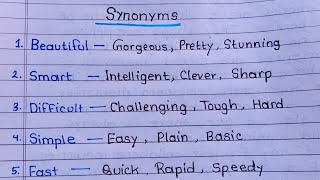 Synonyms
1. Beautiful — Gorgeous, Pretty, Stunning
2. Smart — Intelligent, Clever, Sharp
3. Difficult — Challenging, Tough, Hard
4. Simple — Easy, Plain, Basic
5. Fast — Quick, Rapid, Speedy